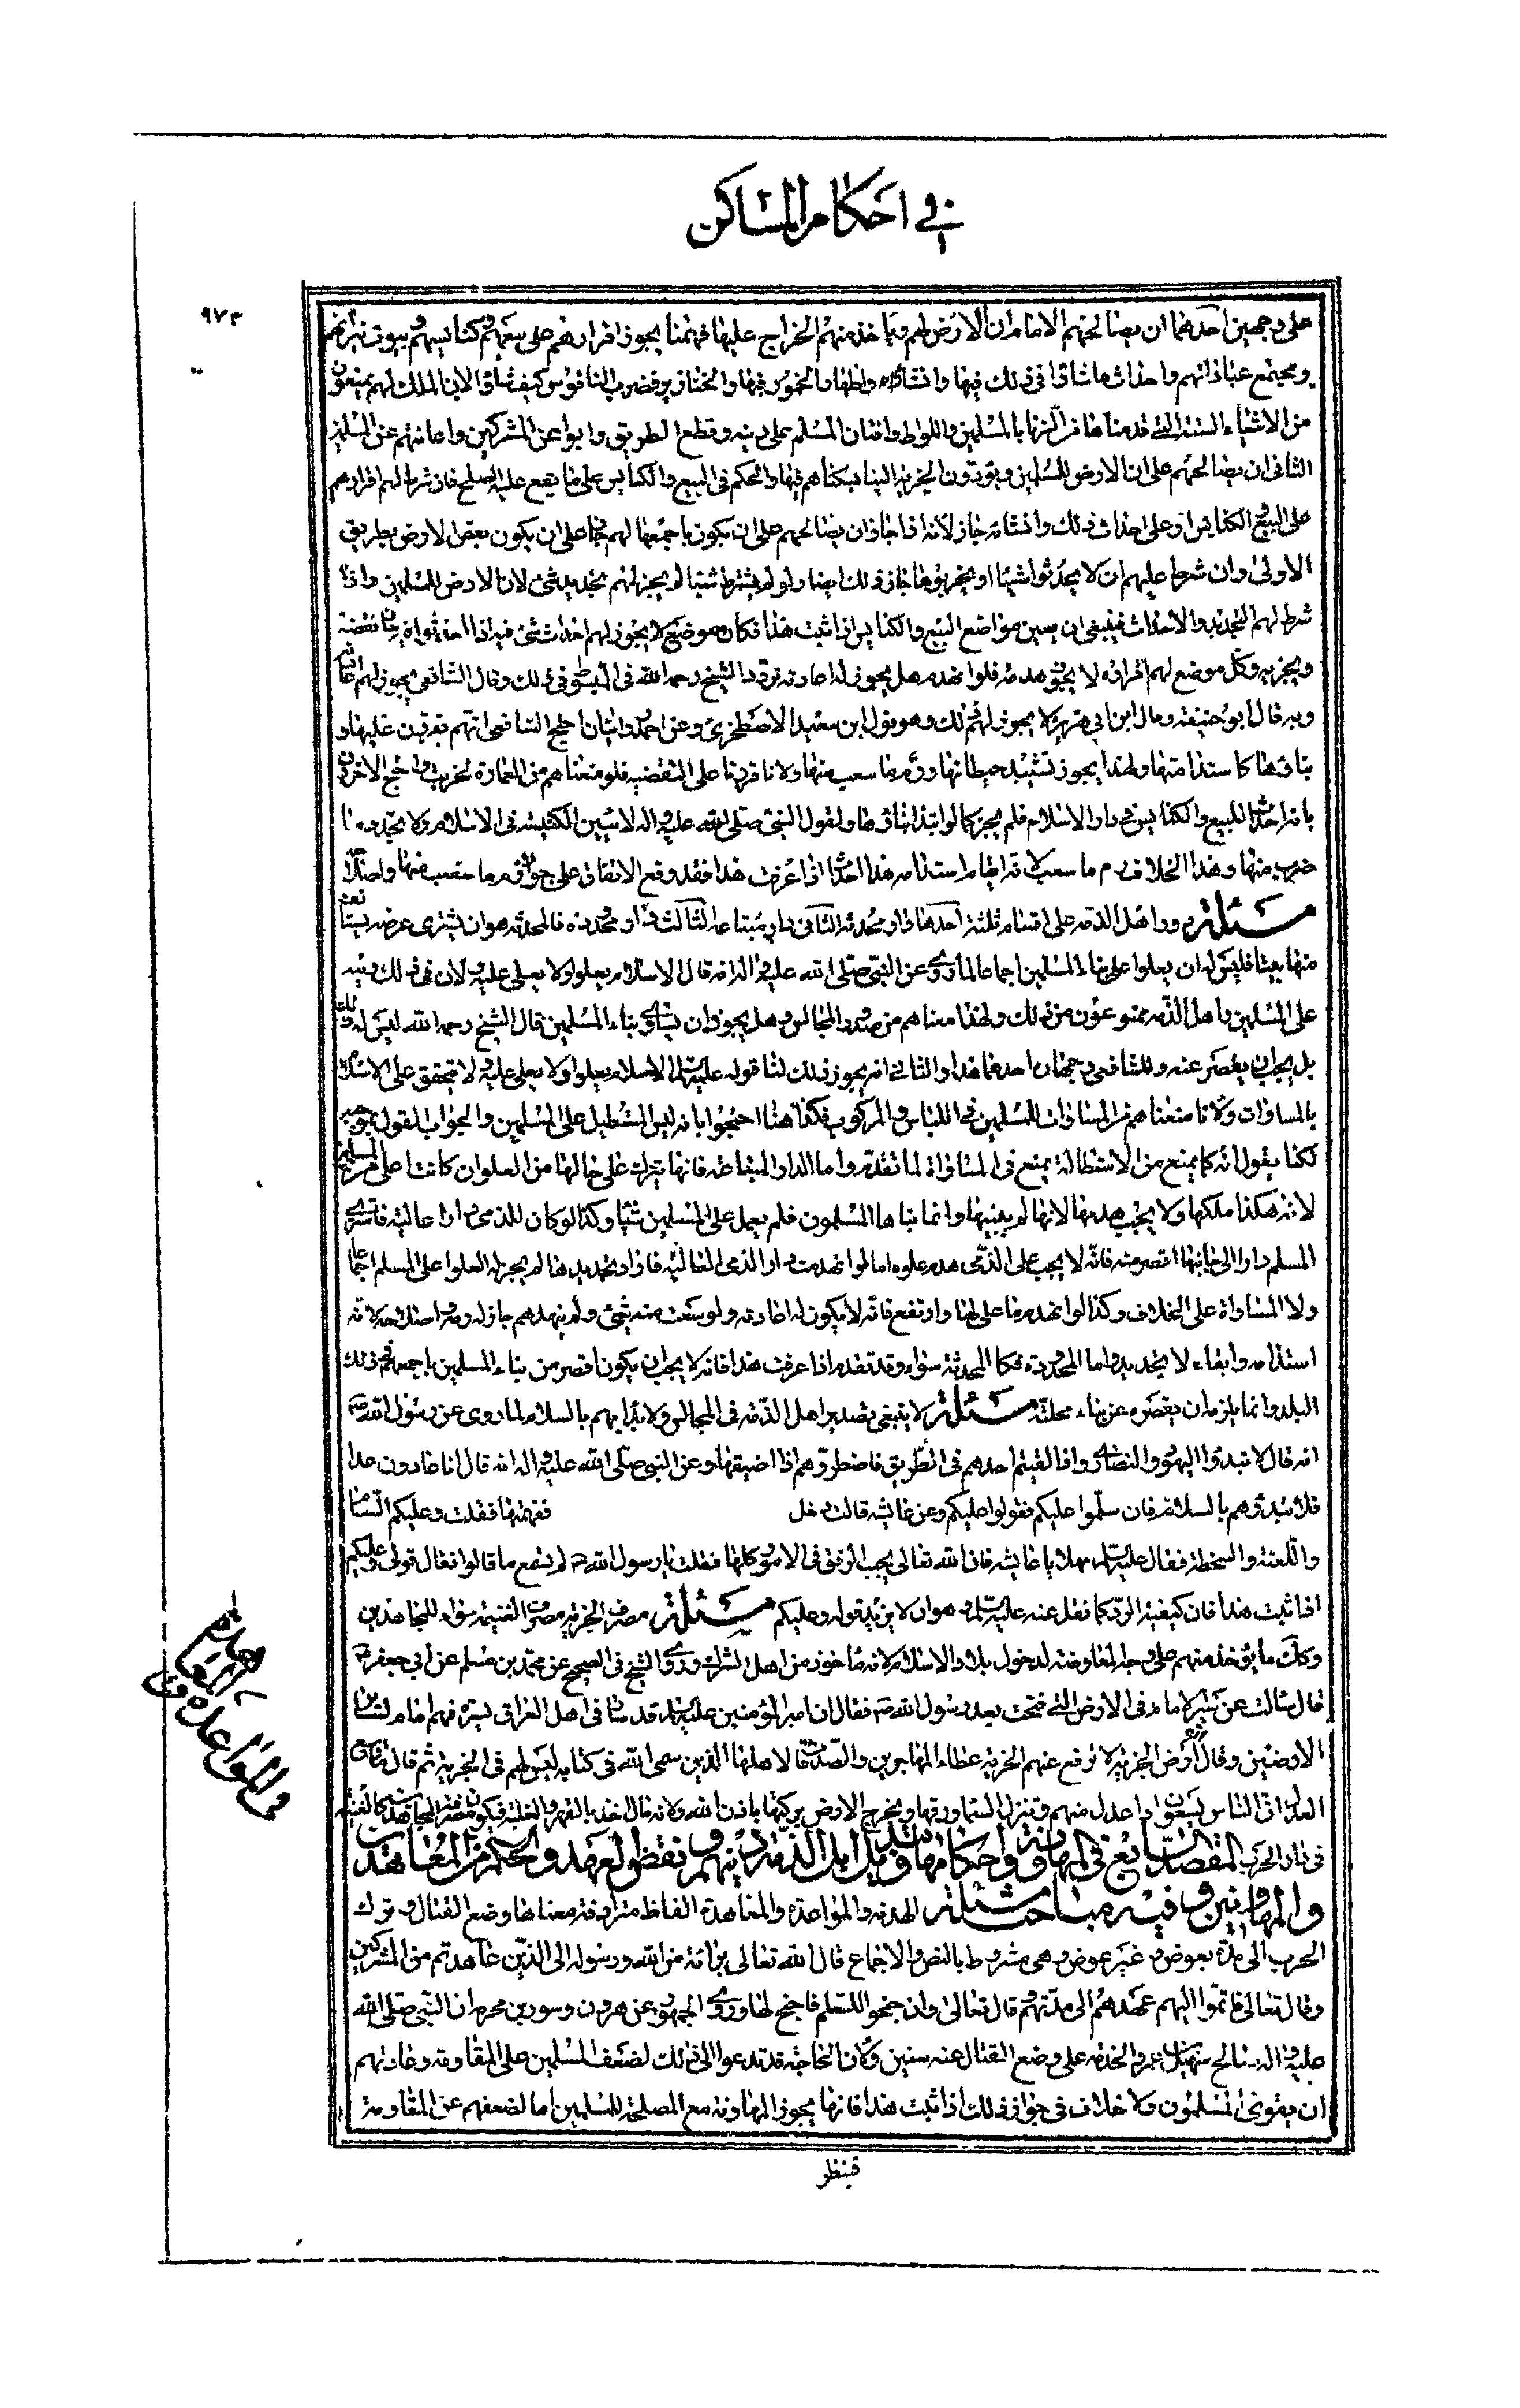 في احكام المساكن
٩٧٣
على وجهين احدهما ان يصالحهم الامام ان الارض لهم وياخذ منهم الخراج عليها فههنا يجوز اقرارهم على بيعهم وكنايسهم وبيوت نيرانهم
ومجتمع عباداتهم واحداث ما شاؤا في ذلك فيها وانشاؤه واظهار الخمور فيها والخنازير وضرب الناقوس كيف شاؤا لان الملك لهم يمنعون
من الاشياء الستة التي قدمناها من الزنا بالمسلمين واللواط وافتتان المسلم على دينه وقطع الطريق وايواء عن المشركين واعانتهم عن المسلمين
الثاني ان يصالحهم على ان الارض للمسلمين ويؤدون الجزية الينا بسكناهم فيها والحكم في البيع والكنايس على ما يقع عليه الصلح فان شرط لهم اقرارهم
على البيع والكنايس او على احداث ذلك وانشائه جاز لانه اذا جاز ان يصالحهم على ان يكون باجمعها لهم جاز على ان يكون بعض الارض بطريق
الاولى وان شرط عليهم ان لا يحدثوا شيئا او يخربوها جاز ذلك ايضا ولو لم يشترط شيئا لم يجز لهم تجديد شئ لان الارض للمسلمين واذا
شرط لهم التجديد والاحداث فينبغي ان يعين مواضع البيع والكنايس اذا ثبت هذا فكل موضع لا يجوز لهم احداث شئ فيه اذا احدثوا فيه جاز نقضه
وتخريبه وكل موضع لهم اقراره لا يجوز هدمه فلو انهدم هل يجوز له اعادته تردد الشيخ رحمه الله في المبسوط في ذلك وقال الشافعي يجوز لهم اعادته
وبه قال ابو حنيفة وقال ابن ابي هريرة لا يجوز لهم ذلك وهو قول ابن سعيد الاصطخري وعن احمد روايتان احتج الشافعي انهم يقرون عليها و
بناؤها كاستدامتها ولهذا يجوز تشييد حيطانها ورم ما شعث منها ولانا قررنا على التقضية فلو منعناهم من العمارة لخربت واحتج الاخرون
بانه احداث للبيع والكنايس في دار الاسلام فلم يجز كما لو ابتدا بناؤها ولقول النبي صلى الله عليه وآله لا تبنى الكنيسة في الاسلام ولا يجدد ما
خرب منها وهذا الخلاف رم ما شعث لانه ابقاء واستدامة وهذا احداث اذا عرفت هذا فقد وقع الاتفاق على جواز رم ما شعث منها واصلاحه
مسئلة ودور اهل الذمة على اقسام ثلثة احدها دار محدثة الثاني دار مبتاعة الثالث دار مجددة فالمحدثة هو ان يشتري عرصة يستانف
منها بيعا فليس له ان يعلوا على بناء المسلمين اجماعا لما روي عن النبي صلى الله عليه وآله انه قال الاسلام يعلو ولا يعلى عليه ولان في ذلك رتبة
على المسلمين واهل الذمة ممنوعون من ذلك ولهذا منعناهم من صدور المجالس وهل يجوز ان يساوي بناء المسلمين قال الشيخ رحمه الله ليس له ذلك
بل يجب ان يقصر عنه وللشافعي وجهان احدهما هذا والثاني انه يجوز ذلك لنا قوله عليه السلام الاسلام يعلوا ولا يعلى عليه لا يتحقق علو الاسلام
بالمساوات ولانا منعناهم من المساوات للمسلمين في اللباس والمركوب فكذا هنا احتجوا بانه ليس المستطيل على المسلمين والجواب القول بموجبه
لكنا يقول انه كما يمنع من الاستطالة يمنع في المساواة لما تقدم واما الدار المبتاعة فانها تترك على حالها من العلو ان كانت اعلى من المسلمين
لانه هكذا ملكها ولا يجب هدمها لانها لم يبنيها وانما بناها المسلمون فلم يعمل على المسلمين شيئا وكذا لو كان للذمي دارا عالية فاشترى
المسلم دارا الى جانبها اقصر منه فانه لا يجب على الذمي هدم علوه اما لو انهدمت دار الذمي العالية فاراد تجديدها لم يجز له العلوا على المسلم اجماعا
ولا المساواة على الخلاف وكذا لو انهدم ما على لها وارتفع فانه لا يكون له اعادته ولو شعث منه شئ ولم ينهدم جاز له رمه واصلاحه لانه
استدامة وابقاء لا تجديد واما المجددة فكالمحدثة سواء وقد تقدم اذا عرفت هذا فانه لا يجب ان يكون اقصر من بناء المسلمين باجمعهم في ذلك
البلد وانما يلزم ان يقصره عن بناء محلته مسئلة لا ينبغي تصدير اهل الذمة في المجالس ولا بدايهم بالسلام لما روى عن رسول الله
انه قال لا تبدؤا اليهود والنصارى واذا لقيتم احدهم في الطريق فاضطروهم اذا اضيقها وعن النبي صلى الله عليه وآله انه قال انا غادون غدا
فلا تبدؤهم بالسلام فان سلموا عليكم فقولوا عليكم وعن عايشة قالت دخل ففهمتها فقلت وعليكم السام
واللعنة والسخطة فقال عليه السلام مهلا يا عايشة فان الله تعالى يحب الرفق في الامور كلها فقلت يا رسول الله الم تسمع ما قالوا فقال قولي وعليكم
اذا ثبت هذا فان كيفية الرد كما نقل عنه عليه السلام وهو ان لا يزيد قوله وعليكم مسئلة مصرف الجزية مصرف الغنيمة سواء للمجاهدين
وكذلك ما يؤخذ منهم على وجه المعاوضة لدخول بلاد الاسلام لانه ماخوذ من اهل الشرك وروى الشيخ في الصحيح عن محمد بن مسلم عن ابي جعفر
قال سالته عن سيرة الامام في الارض التي فتحت بعد رسول الله فقال ان امير المؤمنين عليه السلام قد سار في اهل العراق بسيرة فهم امام لساير
الارضين وقال ان ارض الجزية لا ترفع عنهم الجزية عطاء المهاجرين والصدقات لاهلها الذين سمى الله في كتابه ليس لهم في الجزية ثم قال ما اوسع
العدل ان الناس يسعون اذا عدل منهم وتنزل السماء رزقها ويخرج الارض بركتها باذن الله ولانه مال اخذ بالقهر والغلبة فيكون مصرفه المجاهدين كالغنيمة
في دار الحرب المقصد السابع في المهادنة واحكامها وتبديل اهل الذمة دينهم ونقضوا العهد والحكم من المعاهدين
والمهادنين وفيه مباحث مسئلة الهدنة والمواعدة والمعاهدة الفاظ مترادفة معناها وضع القتال وترك
الحرب الى مدة بعوض وغير عوض وهي مشروط بالنص والاجماع قال الله تعالى برائة من الله ورسوله الى الذين عاهدتم من المشركين
وقال تعالى فاتموا اليهم عهدهم الى مدتهم قال تعالى وان جنحوا للسلم فاجنح لها وروى الجمهور عن هرون وسور بن محرم ان النبي صلى الله
عليه وآله صالح سهيل بن عمرو بالحديبية على وضع القتال عنه سنين ولان الحاجة قد تدعوا الى ذلك لضعف المسلمين على المقاومة وعادتهم
ان يقوى المسلمون ولا خلاف في جواز ذلك اذا ثبت هذا فانها يجوز المهادنة مع المصلحة للمسلمين اما لضعفهم عن المقاومة
فينظر